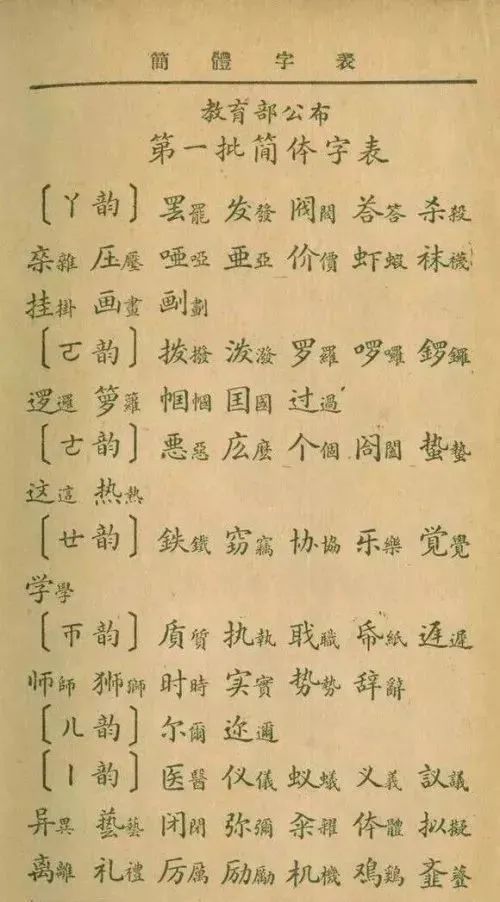 簡體字表
教育部公布
第一批简体字表
〔ㄚ韵〕 罢罷 发發 阀閥 荅答 杀殺
杂雜 压壓 哑啞 亚亞 价價 虾蝦 袜襪
挂掛 画畫 劃
〔ㄛ韵〕 拨撥 泼潑 罗羅 啰囉 锣鑼
逻邏 箩籮 帼幗 国國 过過
〔ㄜ韵〕 恶惡 么麼 个個 阁閣 蛰蟄
这這 热熱
〔ㄝ韵〕 鉄鐵 窃竊 协協 乐樂 覚覺
学學
〔ㄭ韵〕 质質 执執 职職 帋紙 迟遲
师師 狮獅 时時 实實 势勢 辞辭
〔ㄦ韵〕 尔爾 迩邇
〔ㄧ韵〕 医醫 仪儀 蚁蟻 义義 议議
异異 藝 闭閉 弥彌 籴糴 体體 拟擬
离離 礼禮 厉厲 励勵 机機 鸡鷄 齑齏